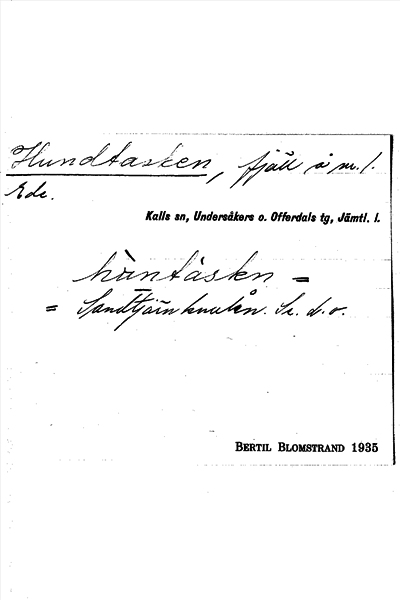 Hundtasken, fjäll å nr. 1.
Ede.
Kalls sn, Undersåkers o. Offerdals tg, Jämtl. l.
hùntàskn =
= Sandtjärnknulen. Se. d. o.
BERTIL BLOMSTRAND 1935